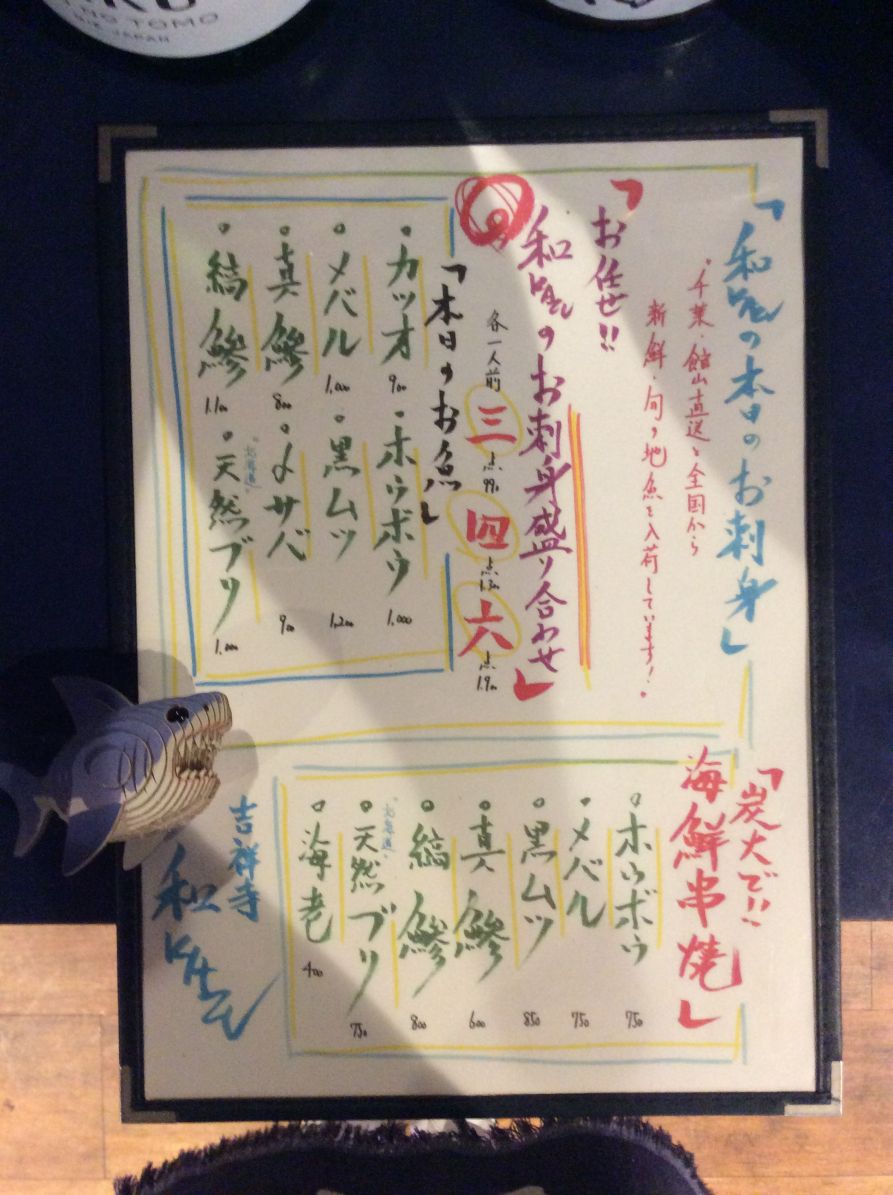 HO TOMO
JAPAN
「和民の本日のお刺身」
"千葉・館山直送と全国から
新鮮・旬な地魚を入荷しています!"
「お任せ!!
和民のお刺身盛り合わせ」
各一人前 三点 990 四点 1.300 六点 1.900
「本日のお魚」
カツオ 900
ホウボウ 1.000
メバル 1.000
黒ムツ 1.200
真鯵 800
〆サバ 900
縞鯵 1.100
"北海道"
天然ブリ 1.000
「炭火で!!
海鮮串焼」
ホウボウ 750
メバル 750
黒ムツ 850
真鯵 600
縞鯵 800
"北海道"
天然ブリ 750
海老 400
吉祥寺